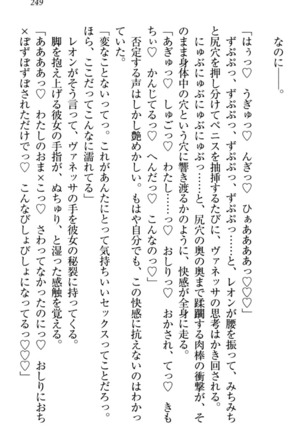 249
なのに――。
「はぅっ♡　うぎゅっ♡　んぎっ♡　ひぁああああっ♡」
ずぷぷっ、ずぷぷっ、ずぷぷっ……と、レオンが腰を振って、みちみち
と尻穴を押し分けてペニスを抽挿するたびに、ヴァネッサの思考はかき回される。
にゅぷにゅぷにゅぷにゅぷっ……と、尻穴の奥の奥まで蹂躙する肉棒の衝撃が、そ
のまま身体中の穴という穴に響き渡るかのように、快感が全身に走る。
「あぎゅっ♡　しゅごっ♡　わたし……っ♡　おしりっ♡　おかされ、てっ♡　きも
ちぃっ♡　かんじてるっ♡　へんだっ♡　こんなのっ♡」
否定する声はしかし艶めかしい。もはや自分でも、この快感に抗えないのはわかっ
ていた。
「変なことないってっ。これがあんたにとって気持ちいいセックスってことだろっ。
ほら、ここだってこんなに濡れてる」
レオンがそう言って、ヴァネッサの手を彼女の秘裂に持ってくる。
脚を抱え上げる彼女の手指が、ぬちゅり、と湿った感触を覚える。
「ああああっ♡　わたしのおま×こっ♡　さわってなかったのにっ♡　おしりにおち
×ぽずぼずぼされただけでっ♡　こんなびしょびしょになってるっ♡♡♡」